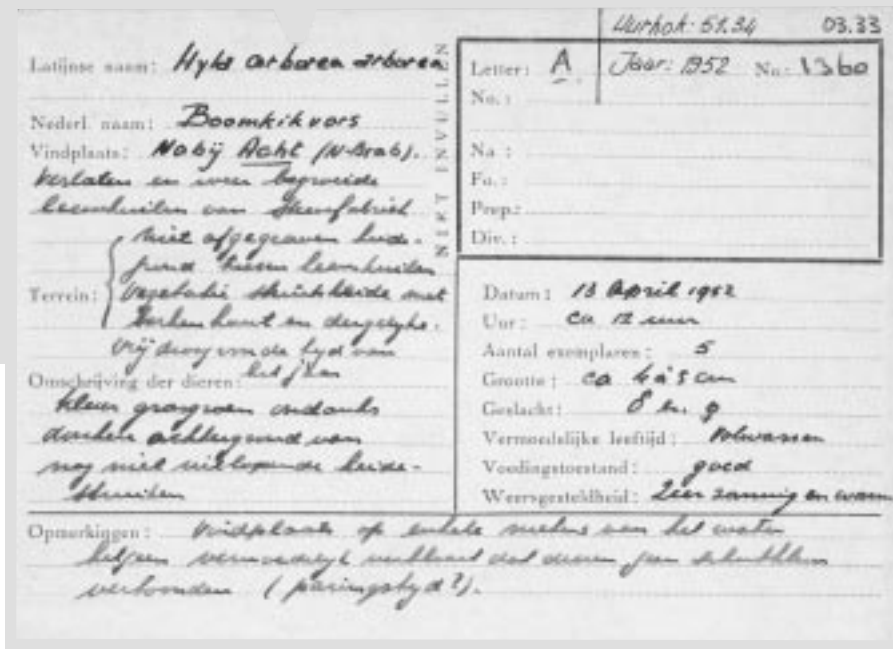 Uurhok: 51.34 03.33
Letter: A Jaar: 1952 No: 1360
No.:
Na :
Fa.:
Prep.:
Div.:
NIET INVULLEN
Latijnse naam: Hyla arborea arborea
Nederl. naam: Boomkikvors
Vindplaats: Nabij Acht (N-Brab).
Verlaten en weer begroeide
leemkuilen van steenfabriek
Terrein: niet afgegraven heide-
grond tussen leemkuilen
vegetatie struikheide met
berkenhout en dergelijke.
vrij droog om de tijd van
het jaar
Omschrijving der dieren:
kleur grasgroen ondanks
donkere achtergrond van
nog niet uitlopende heide-
struiken
Datum: 13 April 1952
Uur: ca 12 uur
Aantal exemplaren: 5
Grootte: ca 4 à 5 cm
Geslacht: ♂ en ♀
Vermoedelijke leeftijd: Volwassen
Voedingstoestand: goed
Weersgesteldheid: Zeer zonnig en warm
Opmerkingen: Vindplaats op enkele meters van het water
hetgeen vermoedelijk verklaart dat dieren geen schutkleur
vertoonden (paringstijd?).